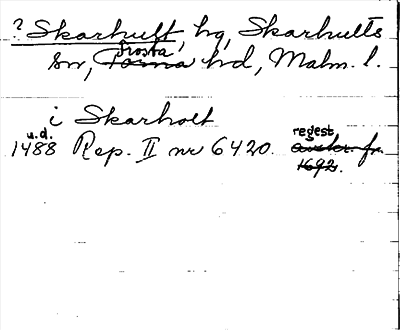 ? Skarhult, hg, Skarhults
Frosta
sn, Torna hd, Malm. l.
i Skarholt
u.d.
1488 Rep. II nr 6420. regest
avskr. fr.
1692.